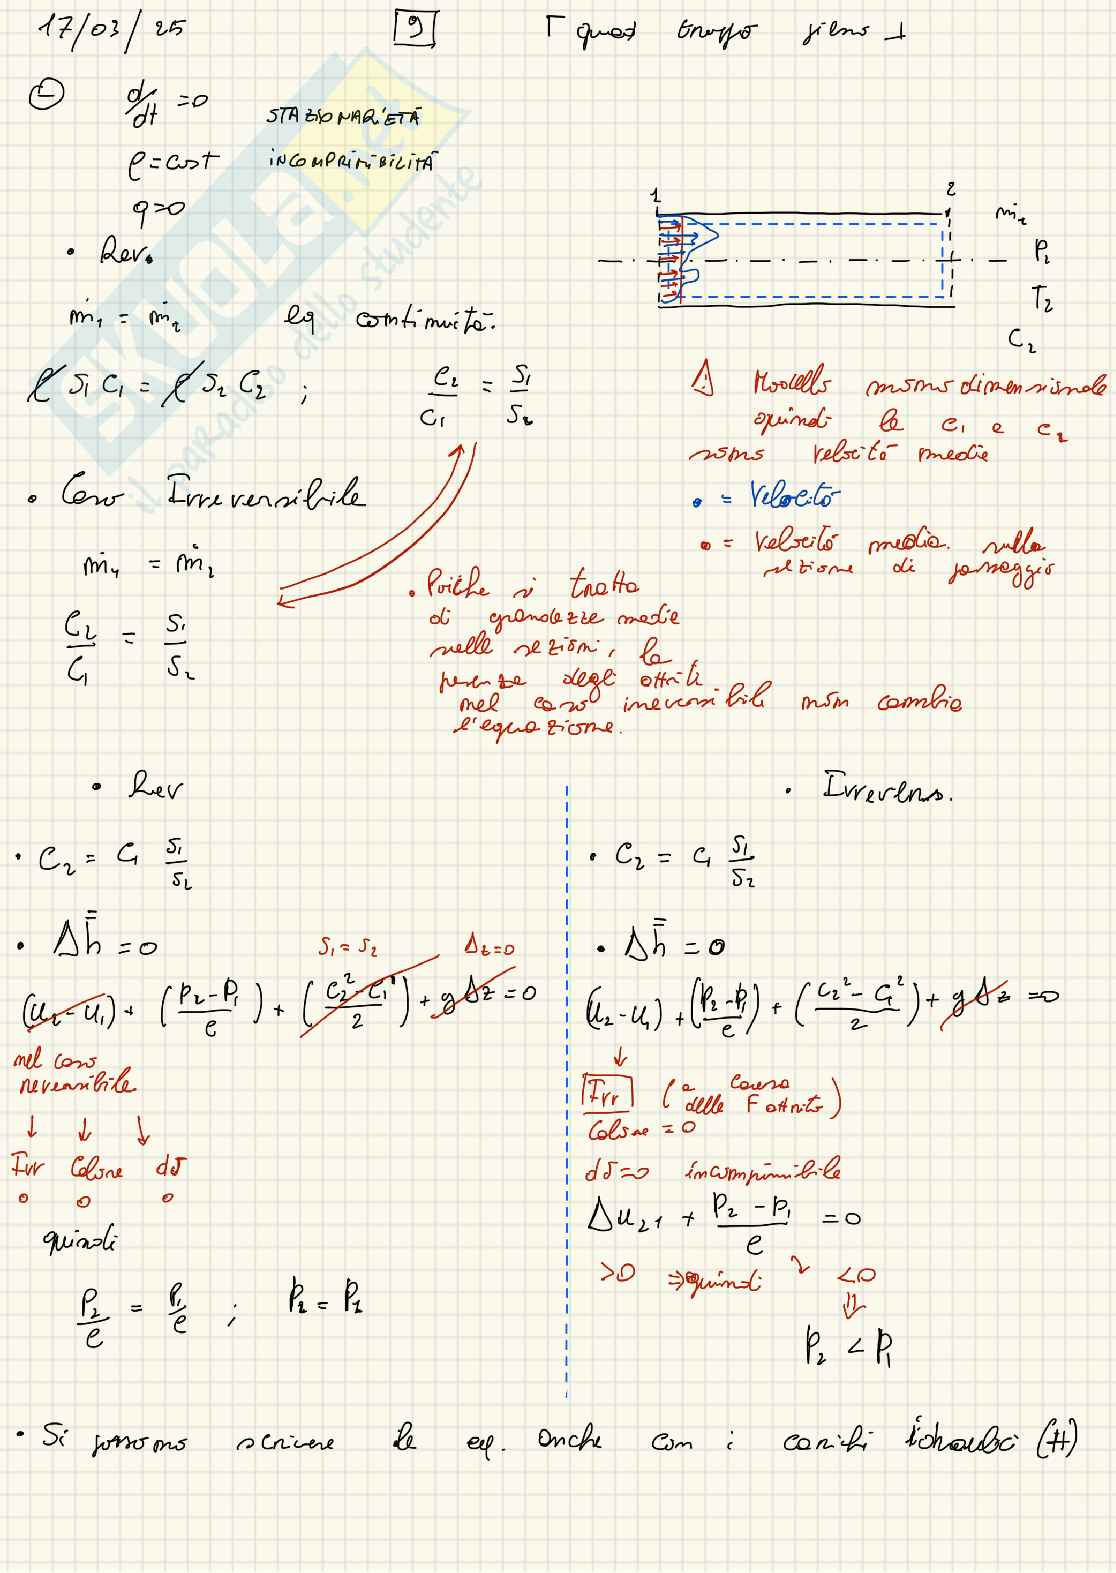 17/03/25 9
d/dt = 0 STAZIONARIETÀ
ρ = cost INCOMPRIMIBILITÀ
q=0
• Rev.
ṁ₁ = ṁ₂ eq continuità.
ρ S₁ C₁ = ρ S₂ C₂ ; C₂/C₁ = S₁/S₂
1 2
ṁ₂
P₂
T₂
C₂
⚠ Modello monodimensionale
quindi le c₁ e c₂
sono velocità medie
• = Velocità
• = Velocità media sulla
sezione di passaggio
• Caso Irreversibile
ṁ₁ = ṁ₂
C₂/C₁ = S₁/S₂
• Poiche si tratta
di grandezze medie
nelle sezioni, la
presenza degli attriti
nel caso irreversibile non cambia
l'equazione.
• Rev
• C₂ = C₁ S₁/S₂
• Δh̿ = 0 S₁ = S₂ Δz=0
(u₂ - u₁) + (P₂-P₁/ρ) + (C₂²-C₁²/2) + gΔz = 0
nel caso
reversibile
↓ ↓ ↓
Irr Calore dσ
0 0 0
quindi
P₂/ρ = P₁/ρ ; P₂ = P₁
• Irrevers.
• C₂ = C₁ S₁/S₂
• Δh̿ = 0
(u₂ - u₁) + (P₂-P₁/ρ) + (C₂² - C₁²/2) + gΔz = 0
↓
Irr (a causa
delle F attrito)
Calore = 0
dσ=0 incomprimibile
Δu₂₁ + P₂ - P₁/ρ = 0
>0 ⇒ quindi <0
⇓
P₂ < P₁
• Si possono scrivere le eq. anche con i carichi idraulici (H)
SKUOLA.net
il paradiso dello studente